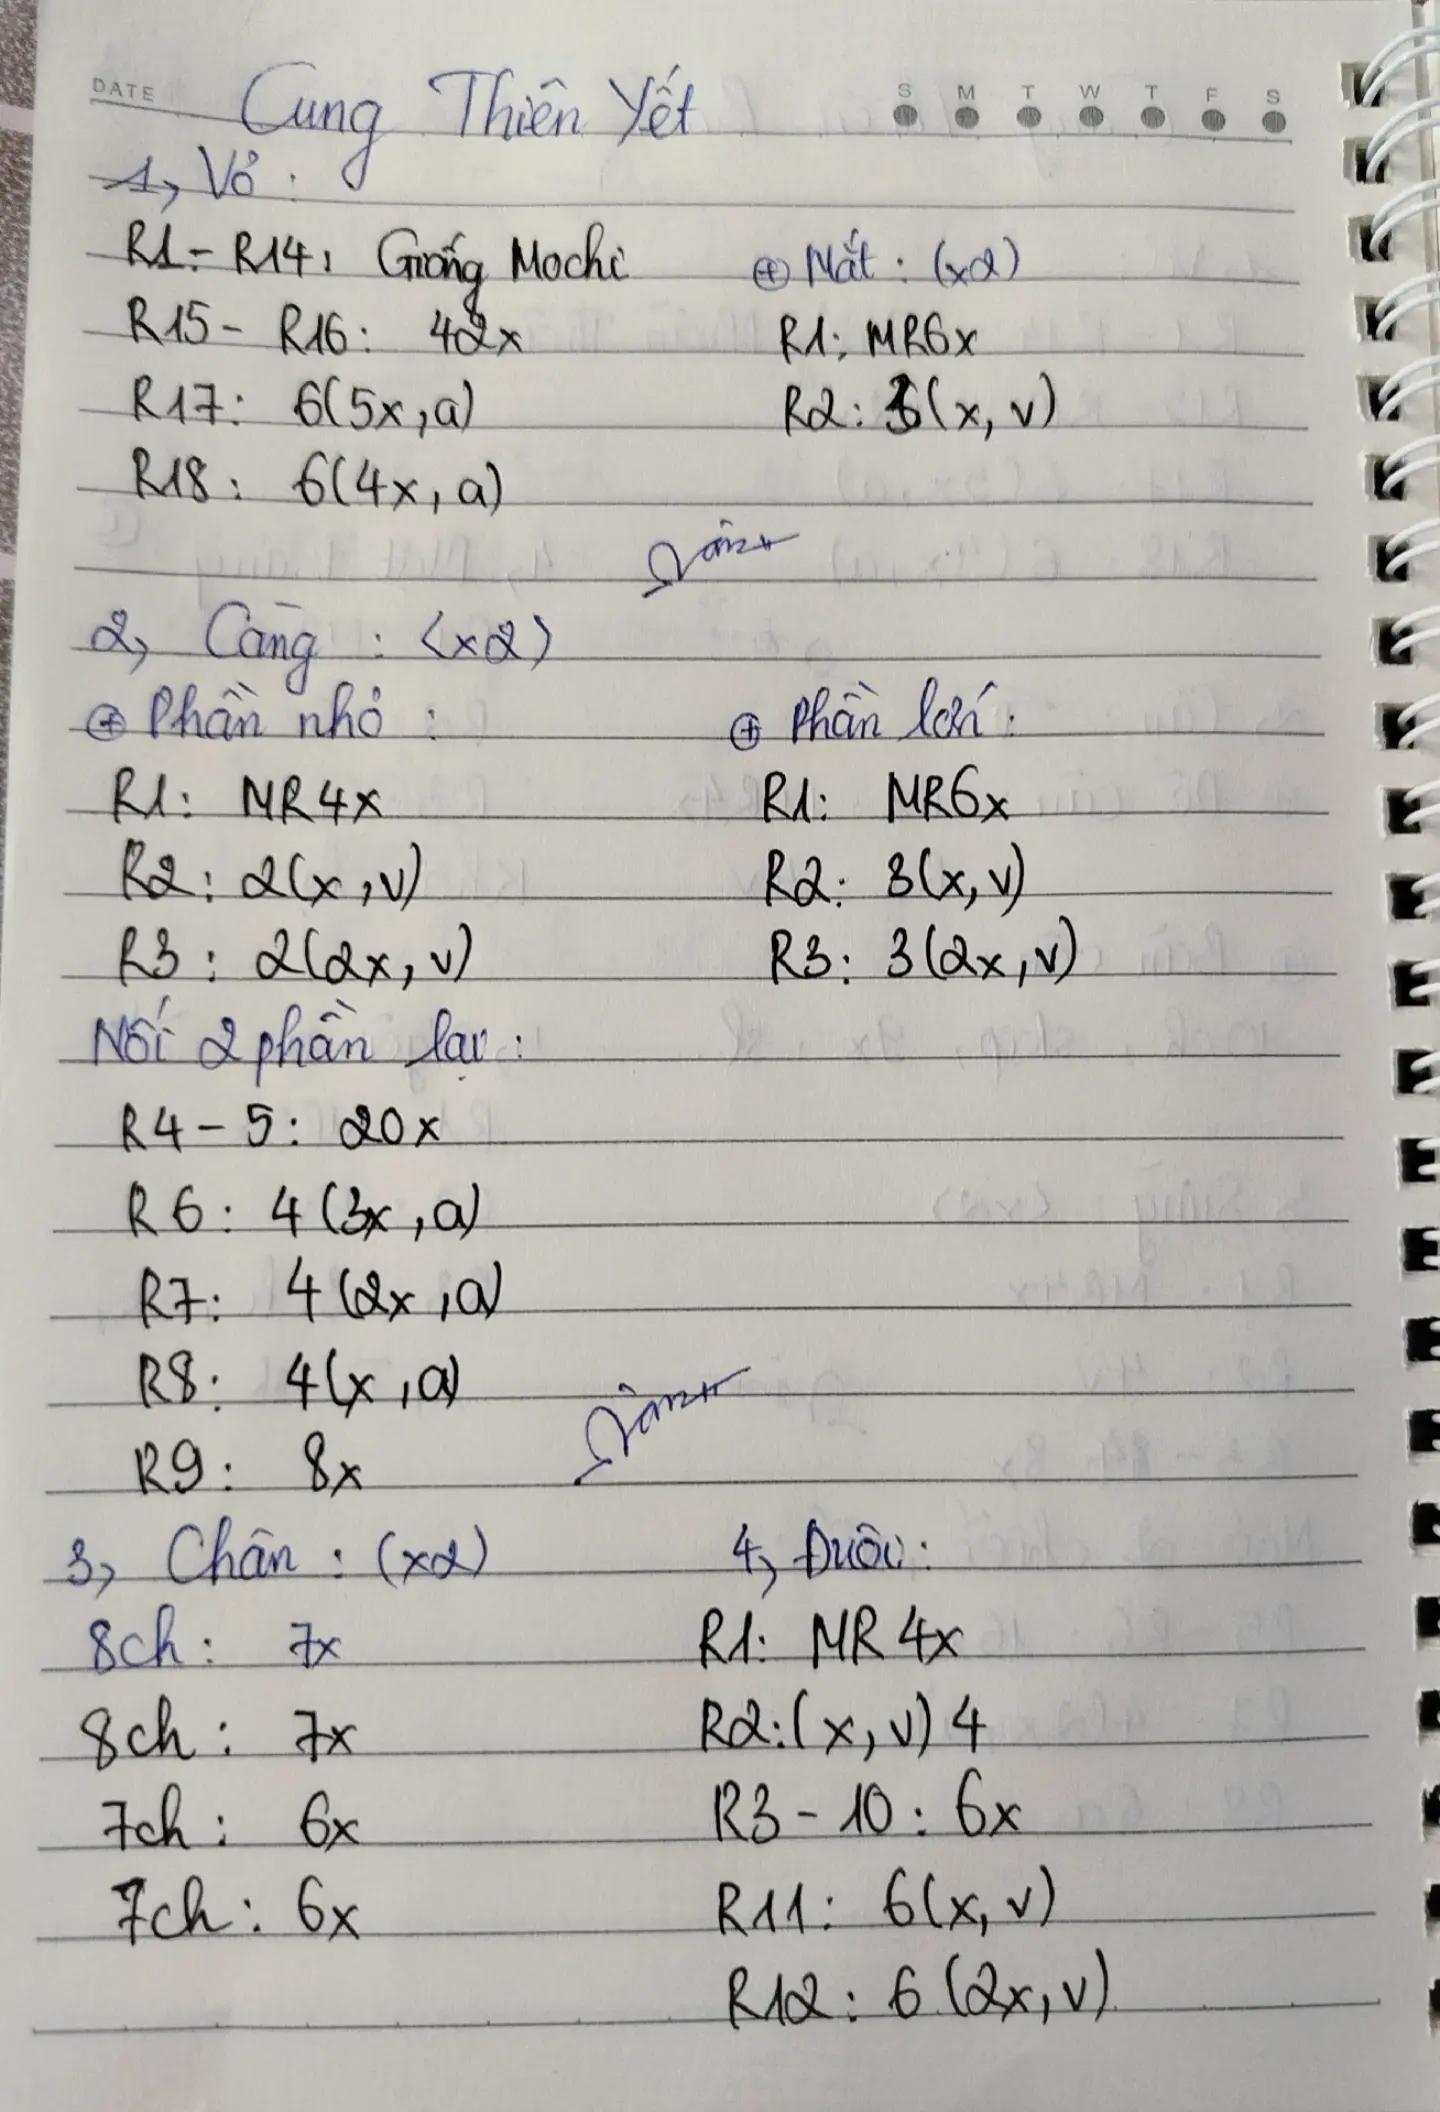 DATE
Cung Thiên Yết
S M T W T F S
1, Vỏ :
R1 - R14: Giống Mochi
R15 - R16: 42x
R17: 6(5x, a)
R18: 6(4x, a)
⊕ Mắt : (x2)
R1: MR6x
R2: 3(x, v)
2, Càng : (x2)
⊕ Phần nhỏ :
R1: MR4x
R2: 2(x, v)
R3: 2(2x, v)
⊕ Phần lớn :
R1: MR6x
R2: 3(x, v)
R3: 3(2x, v)
Nối 2 phần lại :
R4 - 5: 20x
R6: 4(3x, a)
R7: 4(2x, a)
R8: 4(x, a)
R9: 8x
3, Chân : (x2)
8ch: 7x
8ch: 7x
7ch: 6x
7ch: 6x
4, Đuôi:
R1: MR 4x
R2: (x, v) 4
R3 - 10: 6x
R11: 6(x, v)
R12: 6(2x, v)